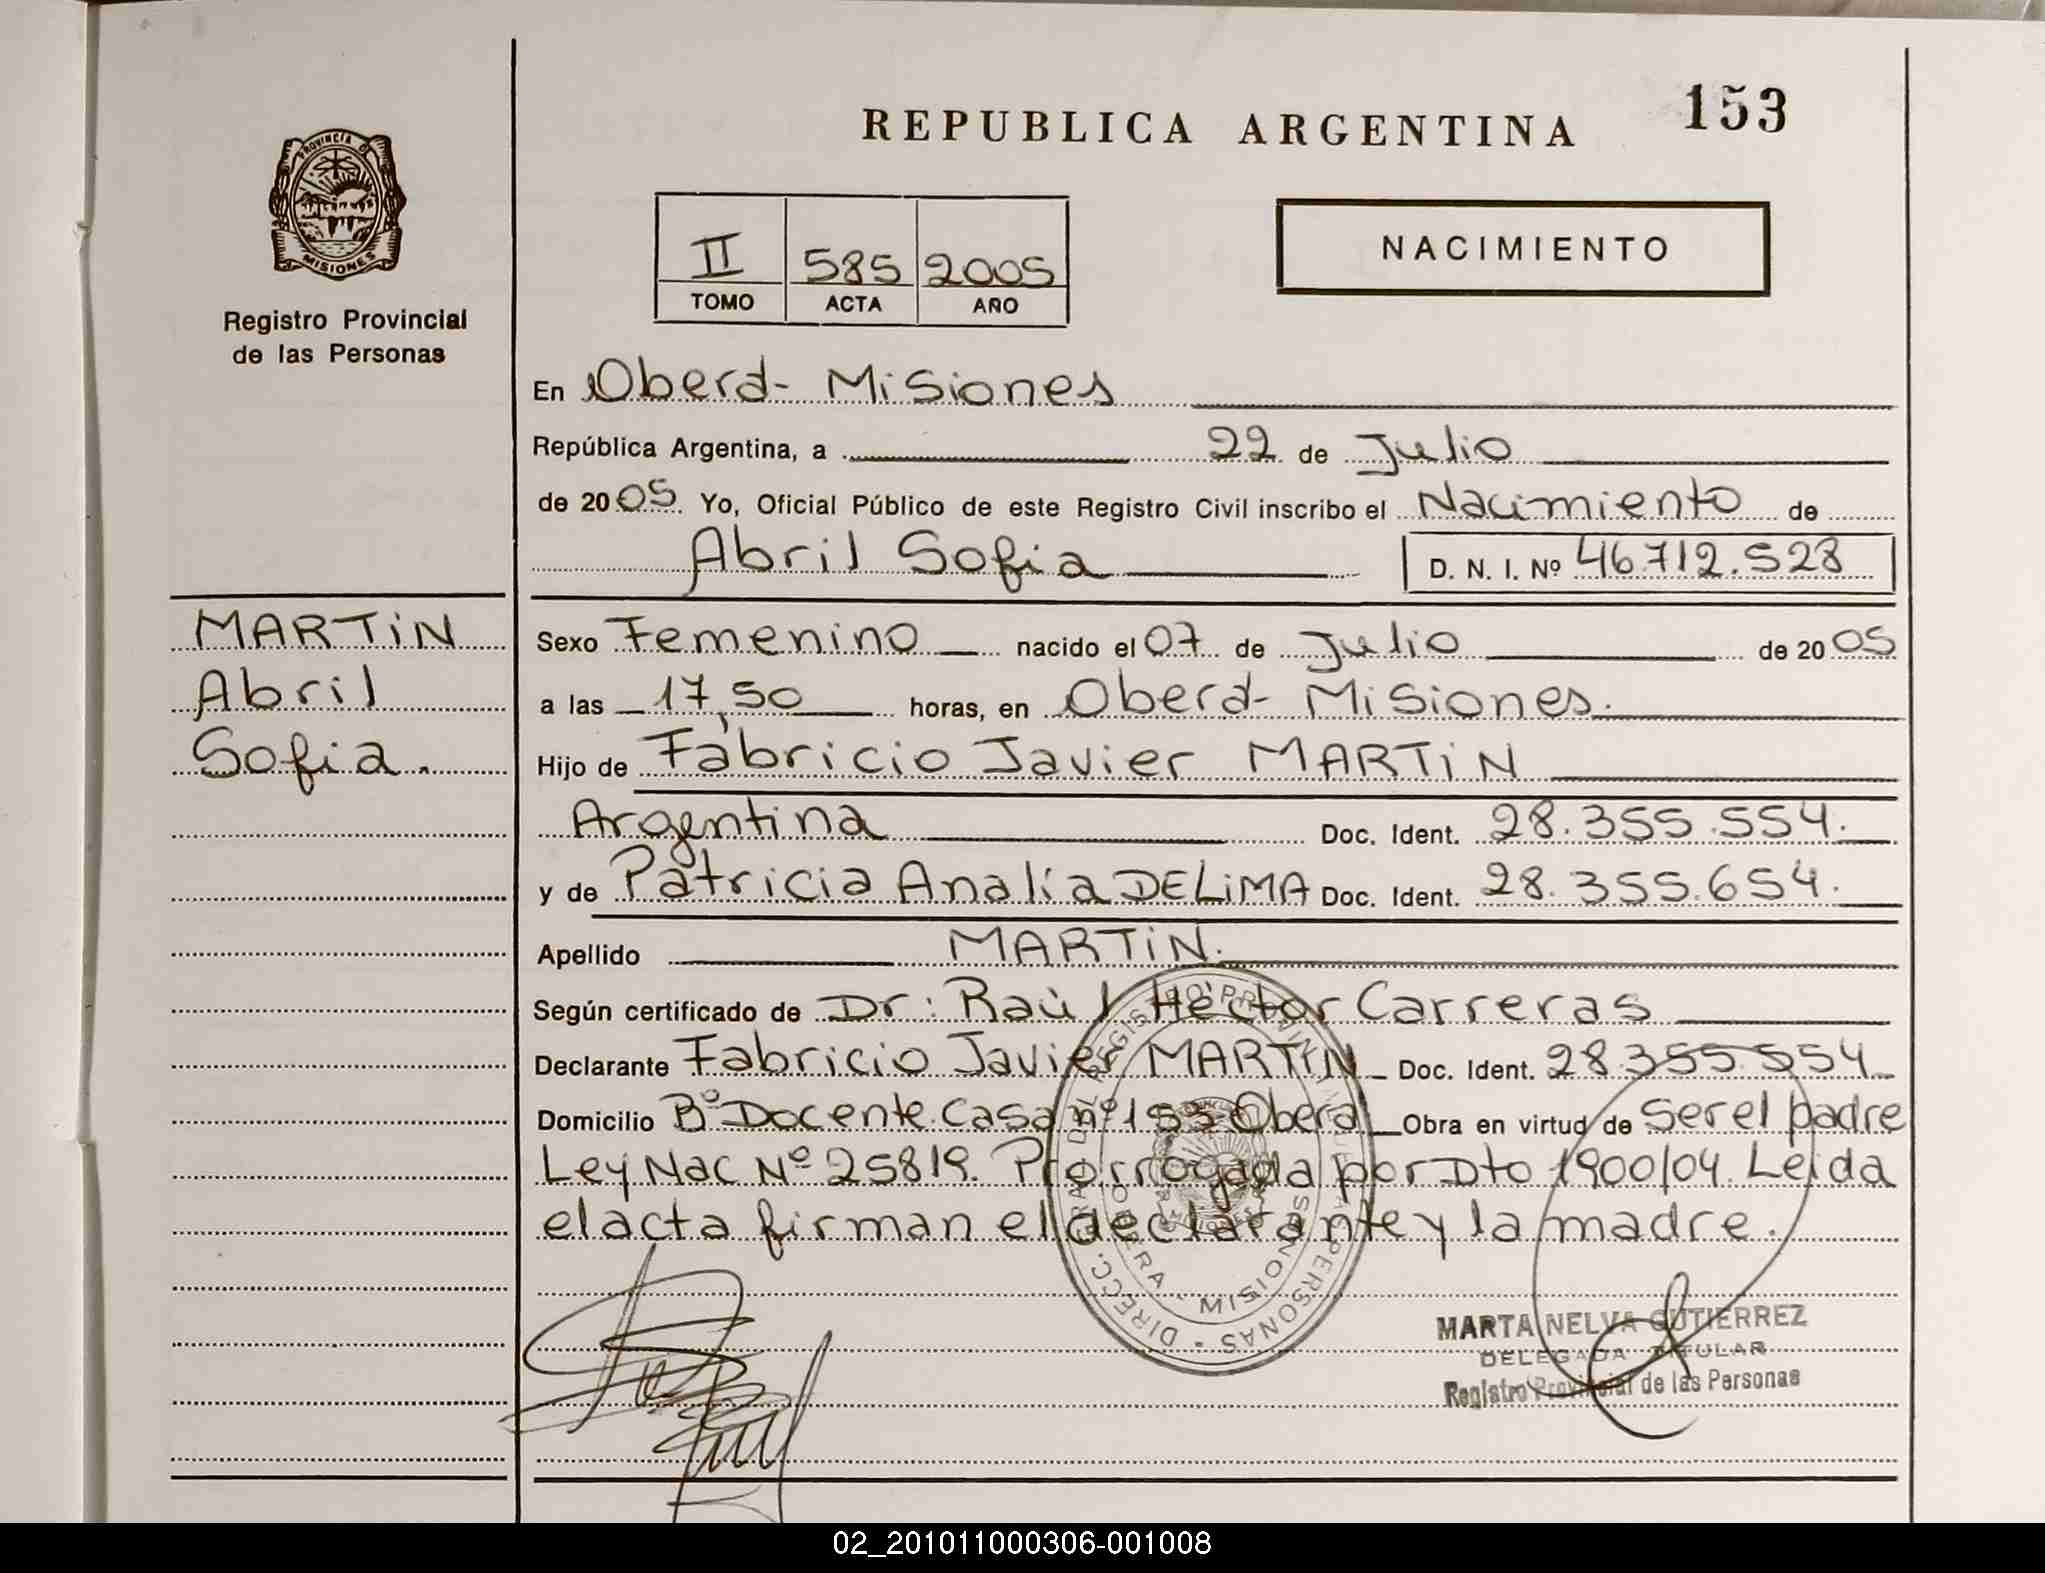 REPUBLICA ARGENTINA
153
PROVINCIA D
MISIONES
Registro Provincial
de las Personas
II 585 2005
TOMO ACTA AÑO
NACIMIENTO
En Oberá- Misiones
República Argentina, a 22 de Julio
de 2005 Yo, Oficial Público de este Registro Civil inscribo el Nacimiento de
Abril Sofia D. N. I. Nº 46.712.528
MARTiN
Abril
Sofia.
Sexo Femenino nacido el 07 de Julio de 2005
a las 17,50 horas, en Oberá- Misiones.
Hijo de Fabricio Javier MARTiN
Argentina Doc. Ident. 28.355.554.
y de Patricia Analía DELiMA Doc. Ident. 28.355.654.
Apellido MARTiN.
Según certificado de Dr: Raúl Héctor Carreras
Declarante Fabricio Javier MARTiN Doc. Ident. 28.355.554
Domicilio Bº Docente Casa nº 153 Oberá Obra en virtud de Ser el padre
Ley Nac Nº 25819. Prorrogada por Dto 1900/04. Leida
el acta firman el declarante y la madre.
DIRECC. GRAL. DEL REGISTRO PROVINCIAL DE LAS PERSONAS
OBERA - MISIONES
MARTA NELVA GUTIERREZ
DELEGADA TITULAR
Registro Provincial de las Personas
02_201011000306-001008